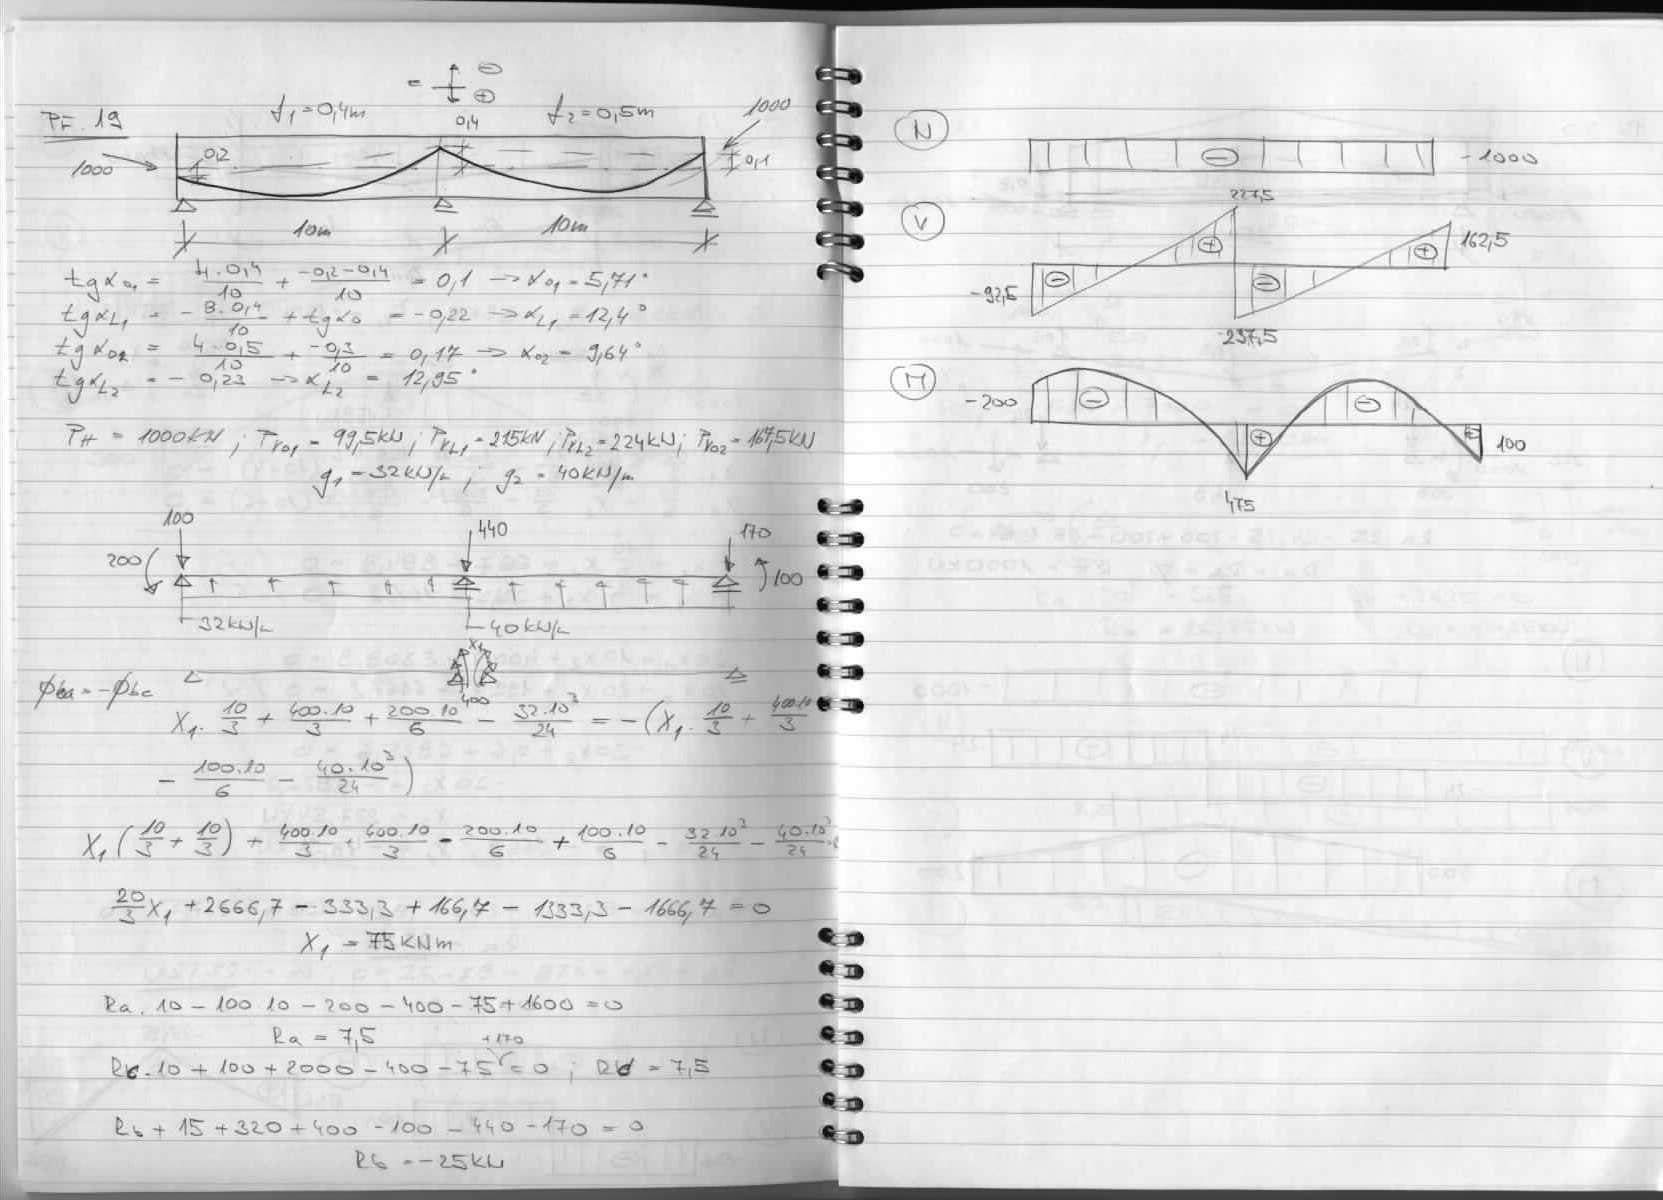 Př. 19
= ⊖
⊕
f₁ = 0,4m
f₂ = 0,5m
1000
0,4
0,2
1000
0,1
10m
10m
tgα₀₁ = 4·0,4/10 + -0,2-0,4/10 = 0,1 → α₀₁ = 5,71°
tgα_L₁ = - 8·0,4/10 + tgα₀ = -0,22 → α_L₁ = 12,4°
tgα₀₂ = 4·0,5/10 + -0,3/10 = 0,17 → α₀₂ = 9,64°
tgα_L₂ = - 0,23 → α_L₂ = 12,95°
P_H = 1000kN ; P_V01 = 99,5kN ; P_VL1 = 215kN ; P_VL2 = 224kN ; P_V02 = 167,5kN
g₁ = 32kN/m ; g₂ = 40kN/m
100
440
170
200
100
32kN/m
40kN/m
X₁
φba = -φbc
400
X₁· 10/3 + 400·10/3 + 200·10/6 - 32·10³/24 = -(X₁· 10/3 + 400·10/3
- 100·10/6 - 40·10³/24)
X₁ (10/3 + 10/3) + 400·10/3 + 400·10/3 - 200·10/6 + 100·10/6 - 32·10³/24 - 40·10³/24
20/3 X₁ + 2666,7 - 333,3 + 166,7 - 1333,3 - 1666,7 = 0
X₁ = 75kNm
Ra·10 - 100·10 - 200 - 400 - 75 + 1600 = 0
Ra = 7,5
+170
Rc·10 + 100 + 2000 - 400 - 75 = 0 ; Rc = 7,5
Rb + 15 + 320 + 400 - 100 - 440 - 170 = 0
Rb = -25kN
N
⊖
-1000
V
227,5
⊕
⊕
162,5
-92,5
⊖
⊖
-237,5
M
-200
⊖
⊖
⊕
⊕
100
475